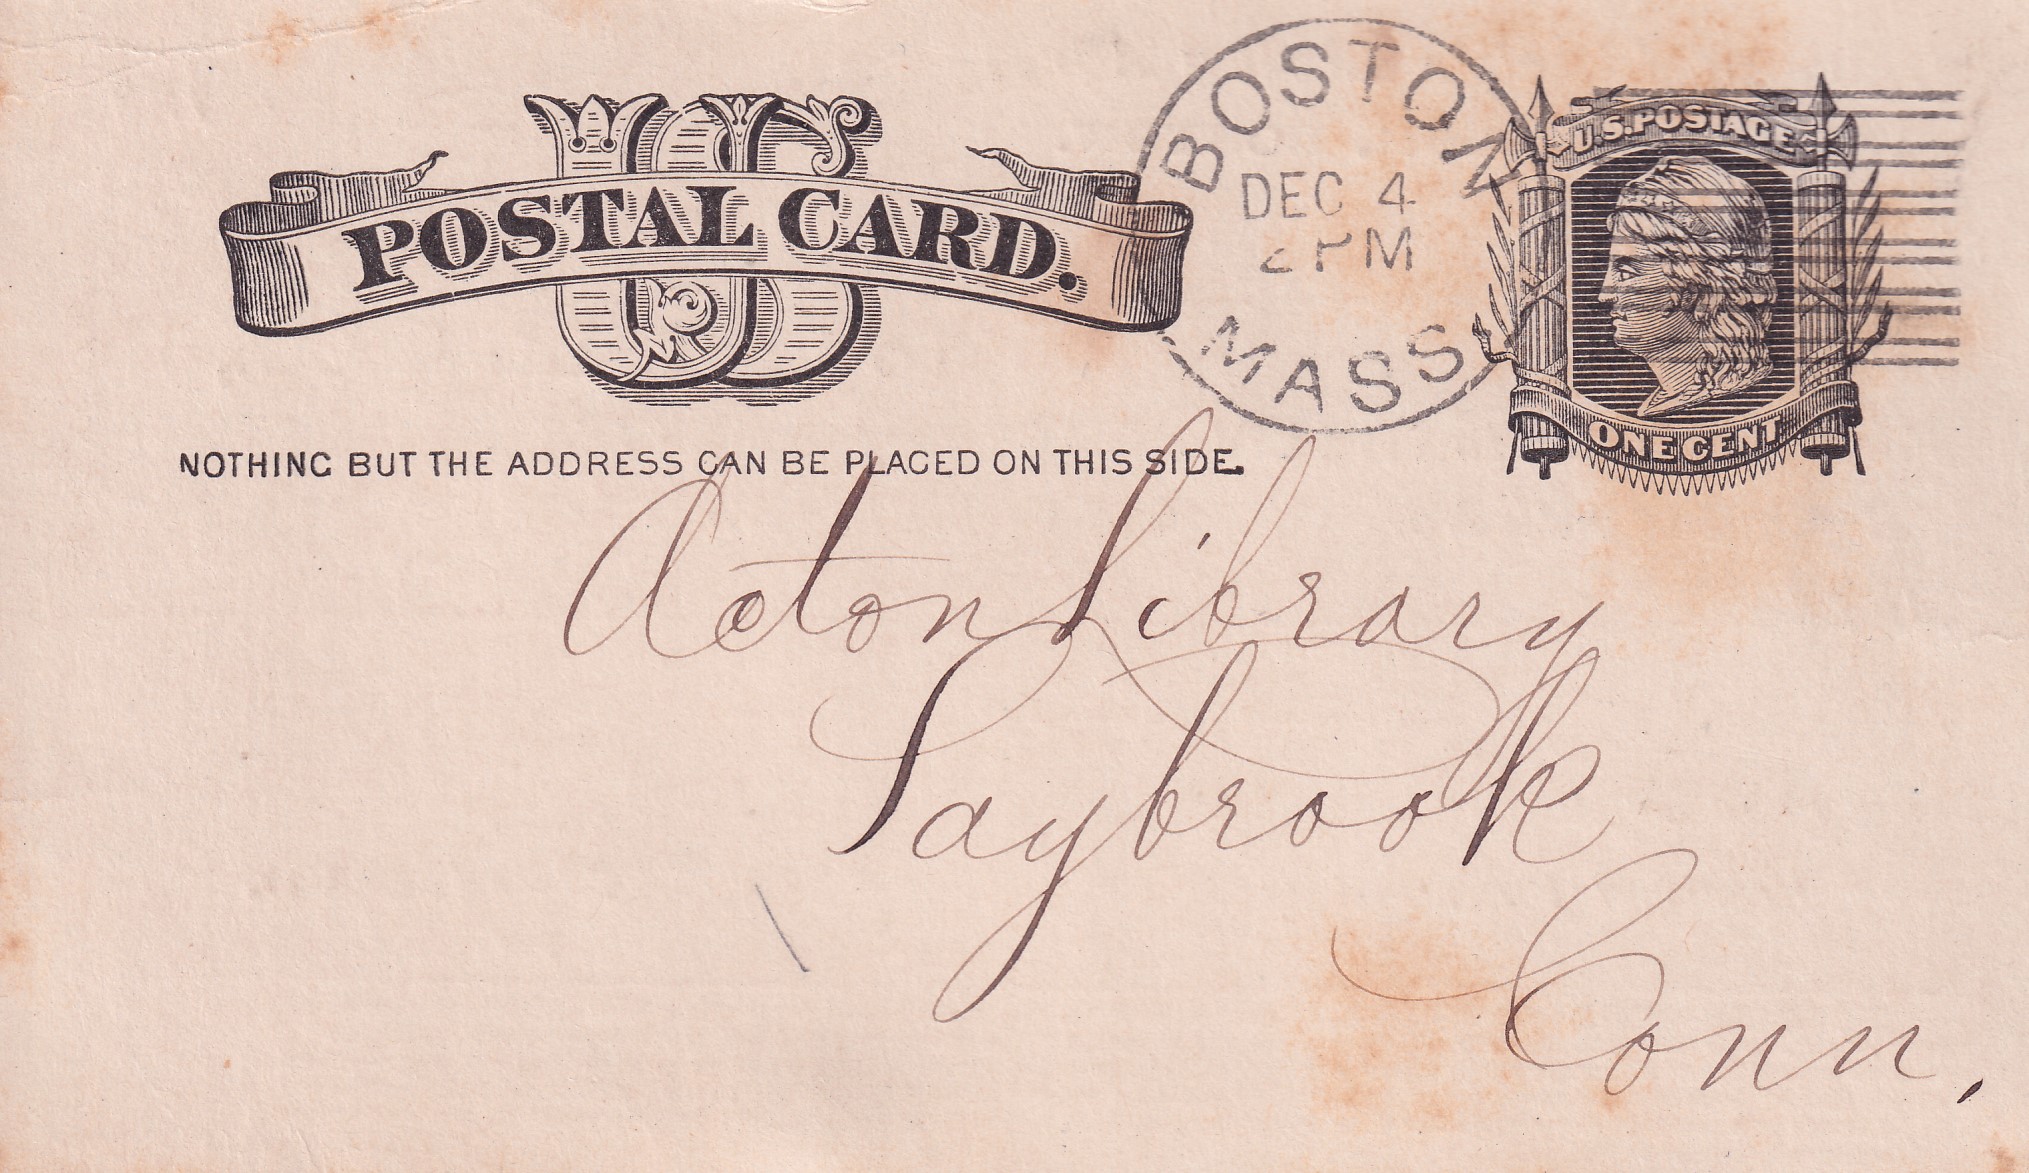 US
POSTAL CARD.
NOTHING BUT THE ADDRESS CAN BE PLACED ON THIS SIDE.
BOSTON
DEC 4
2 PM
MASS
U.S. POSTAGE
ONE CENT
Acton Library
Saybrook
Conn.